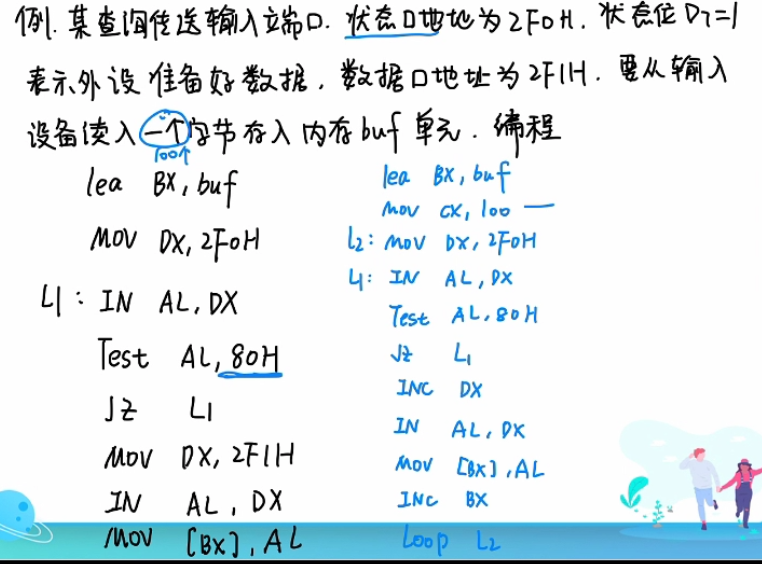 例. 某查询传送输入端口. 状态口地址为2F0H. 状态位D7=1
表示外设准备好数据, 数据口地址为2F1H. 要从输入
设备读入一个字节存入内存buf单元. 编程
100个
lea BX, buf
MOV DX, 2F0H
L1: IN AL, DX
Test AL, 80H
JZ L1
MOV DX, 2F1H
IN AL, DX
MOV [BX], AL
lea BX, buf
mov CX, 100
L2: mov DX, 2F0H
L1: IN AL, DX
Test AL, 80H
JZ L1
INC DX
IN AL, DX
mov [BX], AL
INC BX
Loop L2